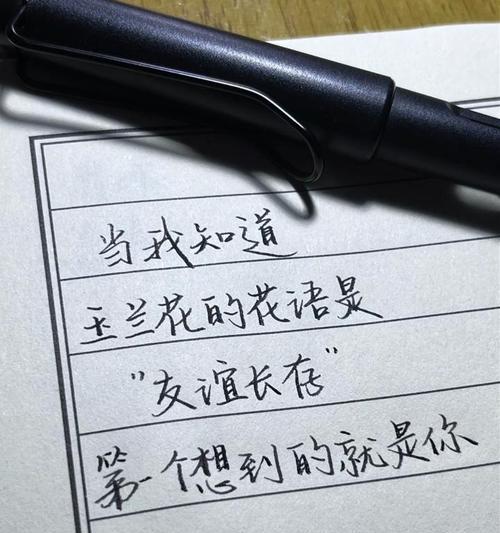 当我知道
玉兰花的花语是
“友谊长存”
第一个想到的就是你